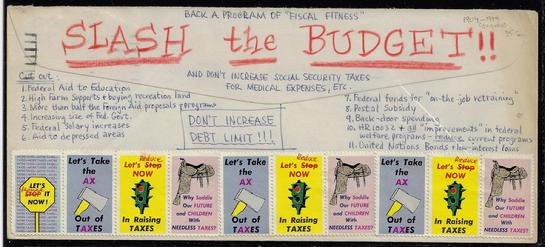 BACK A PROGRAM OF "FISCAL FITNESS"
SLASH the BUDGET!!
Cut out:
1. Federal Aid to Education
2. High Farm Supports + buying recreation land
3. More than half the Foreign Aid proposals + programs
4. Increasing size of Fed. Govt.
5. Federal Salary increases
6. Aid to depressed areas
AND DON'T INCREASE SOCIAL SECURITY TAXES
FOR MEDICAL EXPENSES, ETC.
DON'T INCREASE
DEBT LIMIT!!!
7. Federal funds for "on-the-job retraining"
8. Postal Subsidy
9. Back-door spending
10. HR 10032 + all "improvements" in federal
welfare programs - reduce current programs
11. United Nations Bonds + low-interest loans
LET'S
STOP IT
NOW!
Let's Take
the
AX
Out of
TAXES
Reduce
Let's Stop
NOW
In Raising
TAXES
Why Saddle
Our FUTURE
and CHILDREN
With
NEEDLESS TAXES?
Let's Take
the
AX
Out of
TAXES
Reduce
Let's Stop
NOW
In Raising
TAXES
Why Saddle
Our FUTURE
and CHILDREN
With
NEEDLESS TAXES?
Let's Take
the
AX
Out of
TAXES
Reduce
Let's Stop
NOW
In Raising
TAXES